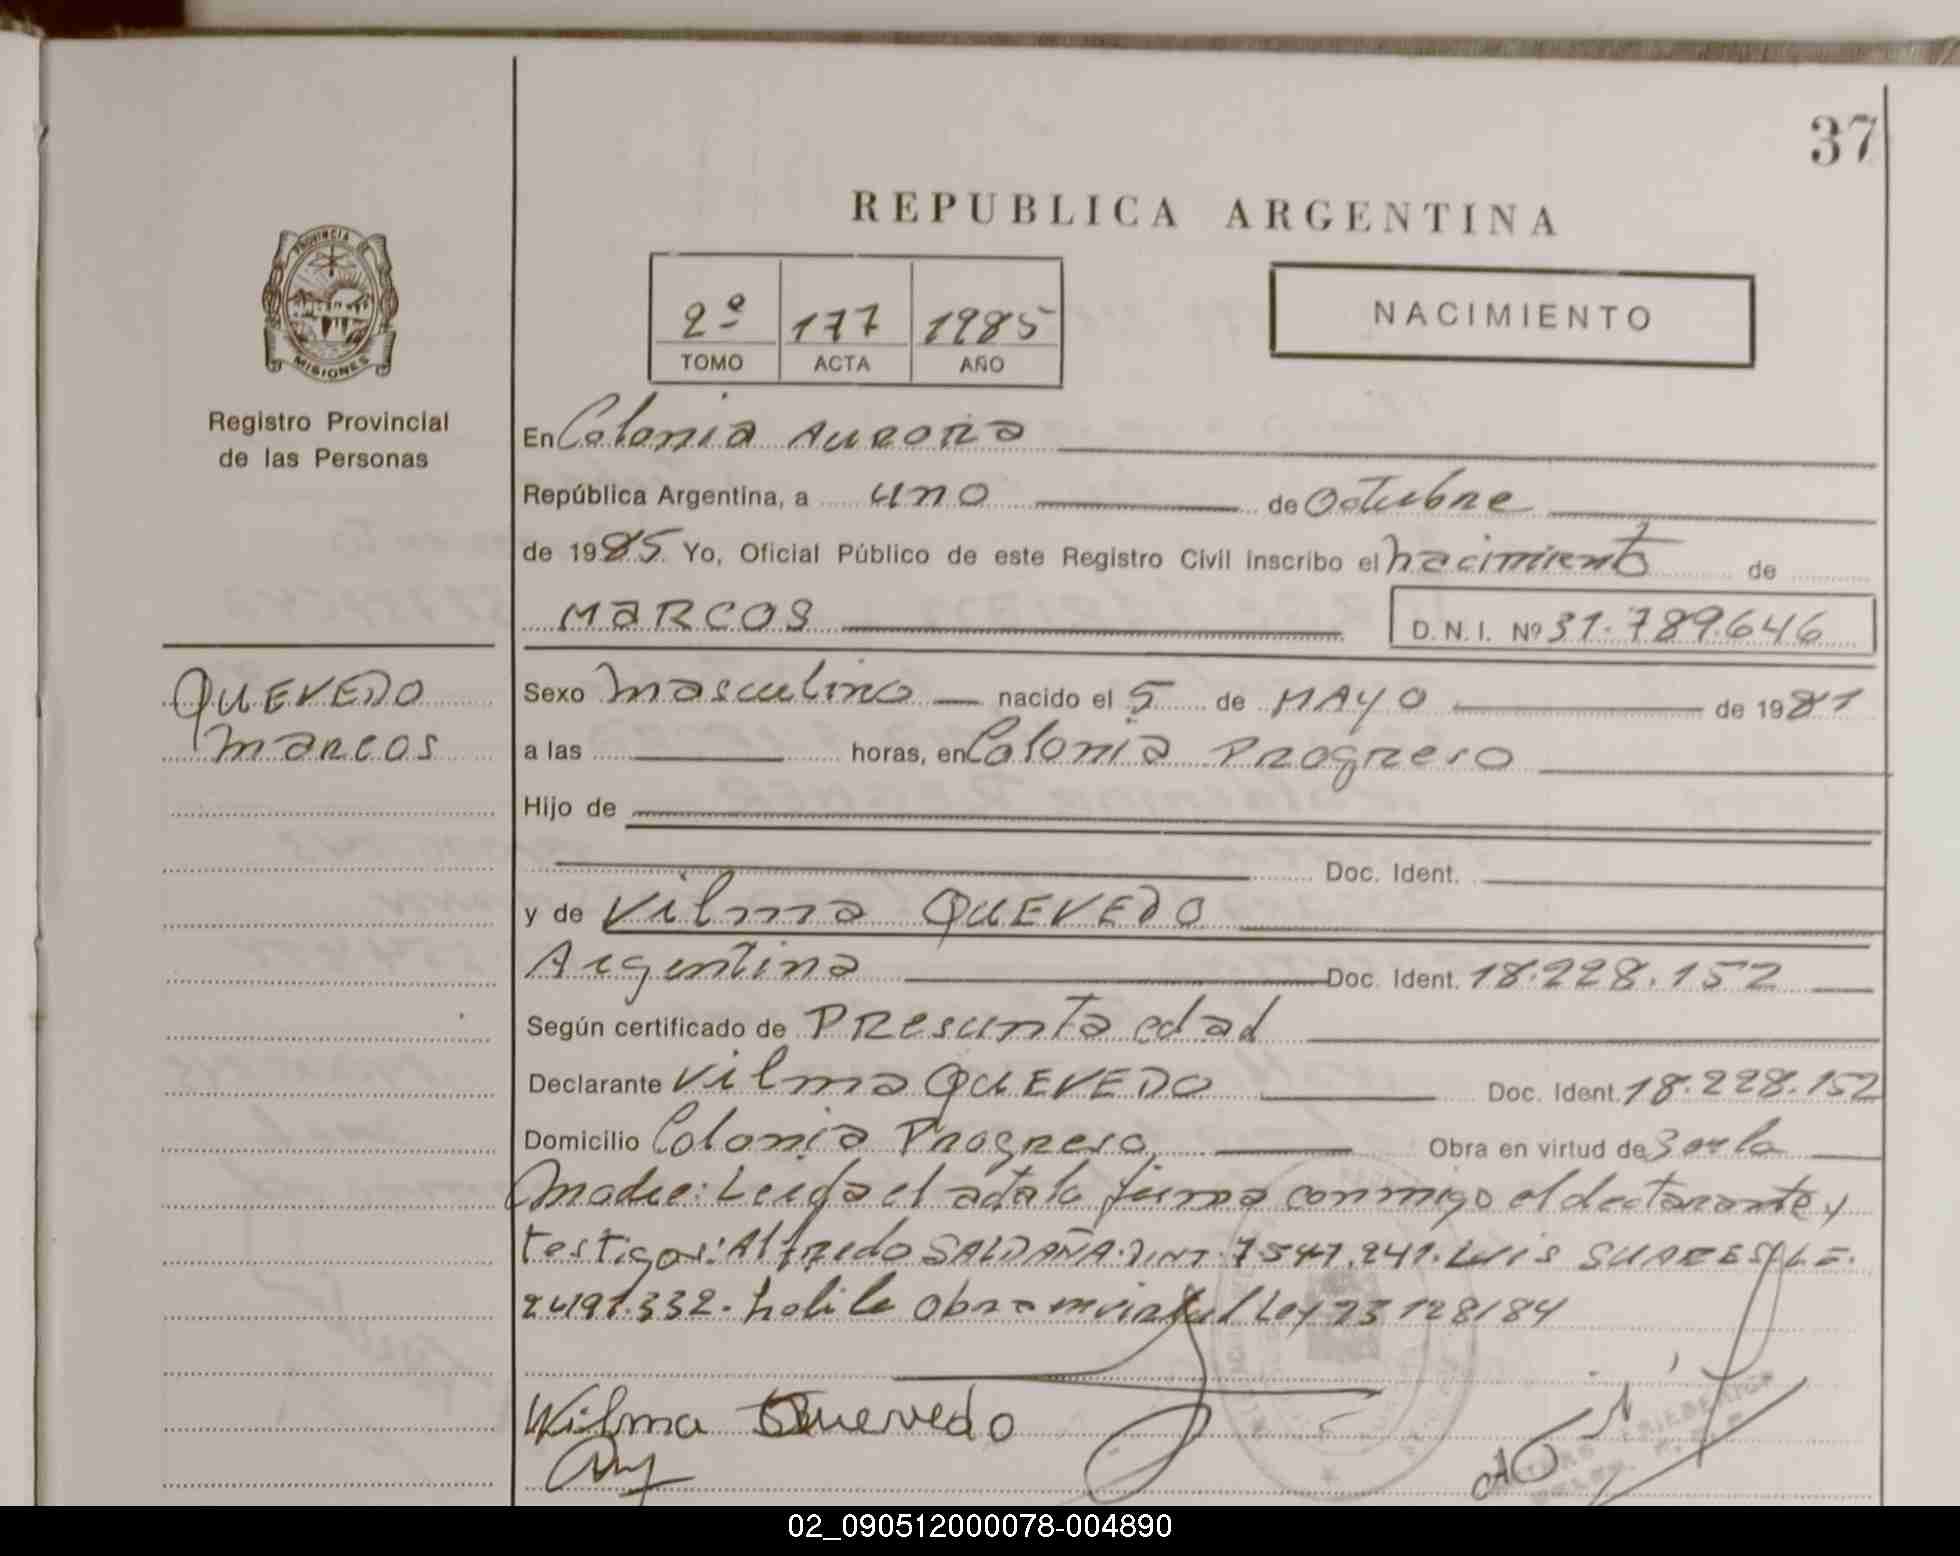 37
REPUBLICA ARGENTINA
PROVINCIA DE
MISIONES
2º 177 1985
TOMO ACTA AÑO
NACIMIENTO
Registro Provincial
de las Personas
En Colonia Aurora
República Argentina, a uno de Octubre
de 1985 Yo, Oficial Público de este Registro Civil inscribo el nacimiento de
MARCOS D.N.I. Nº 31.789.646
QUEVEDO
Marcos
Sexo Masculino nacido el 5 de MAYO de 1981
a las horas, en Colonia Progreso
Hijo de
Doc. Ident.
y de Vilma QUEVEDO
Argentina Doc. Ident. 18.228.152
Según certificado de Presunta edad
Declarante Vilma QUEVEDO Doc. Ident. 18.228.152
Domicilio Colonia Progreso Obra en virtud de
Madre: Leida el acta la firma conmigo el declarante y
testigos: Alfredo SALDAÑA. 7.547.241. Luis SUARES L.E.
332. Obra en virtud Ley 23128/84
Wilma Quevedo
02_090512000078-004890